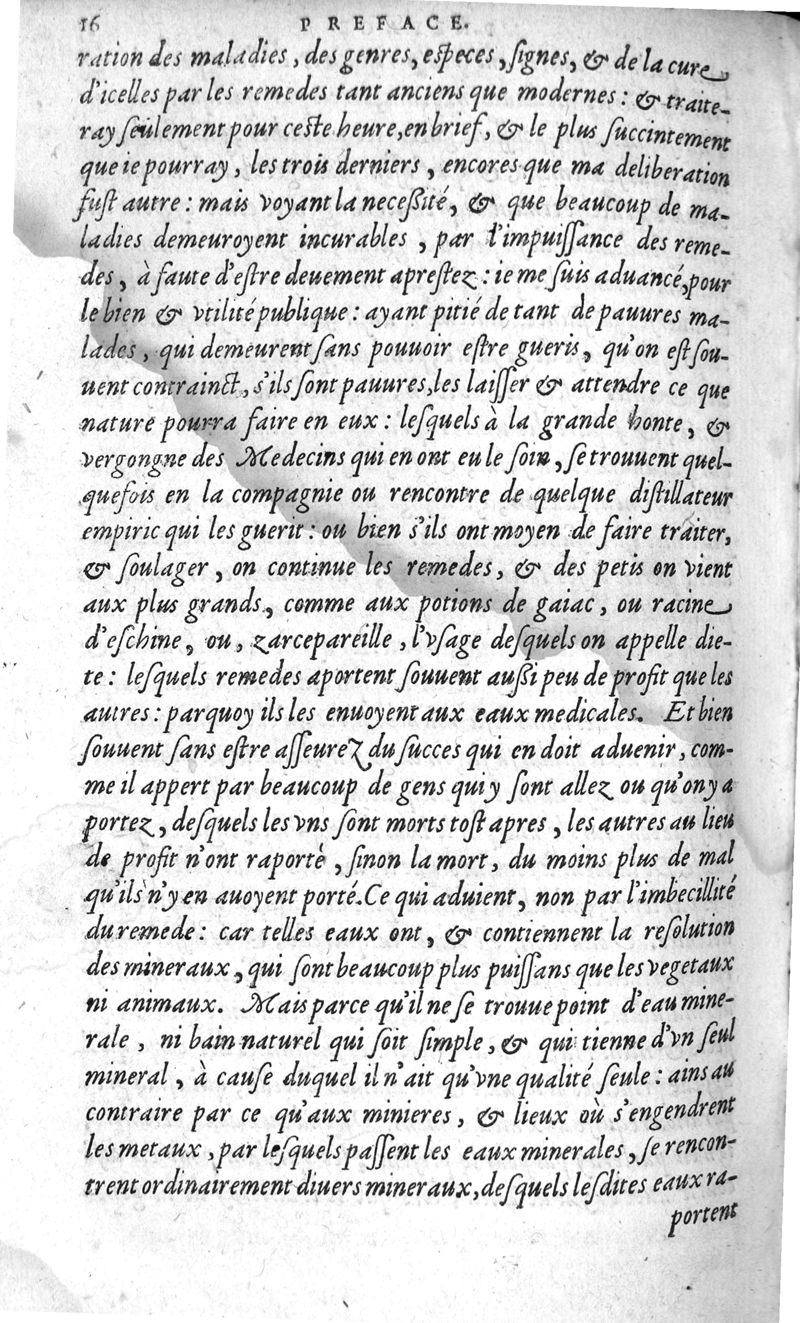 16 PREFACE.
ration des maladies, des genres, especes, ſignes, & de la cure,
d'icelles par les remedes tant anciens que modernes: & traite-
ray ſeulement pour ceſte heure, en brief, & le plus ſuccintement
que ie pourray, les trois derniers, encores que ma deliberation
fuſt autre: mais voyant la neceßité, & que beaucoup de ma-
ladies demeuroyent incurables, par l'impuiſſance des reme-
des, à faute d'eſtre deuement apreſtez: ie me ſuis aduancé, pour
le bien & vtilité publique: ayant pitié de tant de pauures ma-
lades, qui demeurent ſans pouuoir eſtre gueris, qu'on eſt ſou-
uent contrainct, s'ils ſont pauures, les laiſſer & attendre ce que
nature pourra faire en eux: leſquels à la grande honte, &
vergongne des Medecins qui en ont eu le ſoin, ſe trouuent quel-
quefois en la compagnie ou rencontre de quelque diſtillateur
empiric qui les guerit: ou bien s'ils ont moyen de faire traiter,
& ſoulager, on continue les remedes, & des petis on vient
aux plus grands, comme aux potions de gaiac, ou racine
d'eſchine, ou, zarcepareille, l'vſage deſquels on appelle die-
te: leſquels remedes aportent ſouuent außi peu de profit que les
autres: parquoy ils les enuoyent aux eaux medicales. Et bien
ſouuent ſans eſtre aſſeurez du ſucces qui en doit aduenir, com-
me il appert par beaucoup de gens qui y ſont allez ou qu'on y a
portez, deſquels les vns ſont morts toſt apres, les autres au lieu
de profit n'ont raportè, ſinon la mort, du moins plus de mal
qu'ils n'y en auoyent porté. Ce qui aduient, non par l'imbecillité
du remede: car telles eaux ont, & contiennent la reſolution
des mineraux, qui ſont beaucoup plus puiſſans que les vegetaux
ni animaux. Mais parce qu'il ne ſe trouue point d'eau mine-
rale, ni bain naturel qui ſoit ſimple, & qui tienne d'vn ſeul
mineral, à cauſe duquel il n'ait qu'vne qualité ſeule: ains au
contraire par ce qu'aux minieres, & lieux où s'engendrent
les metaux, par leſquels paſſent les eaux minerales, ſe rencon-
trent ordinairement diuers mineraux, deſquels leſdites eaux ra-
portent